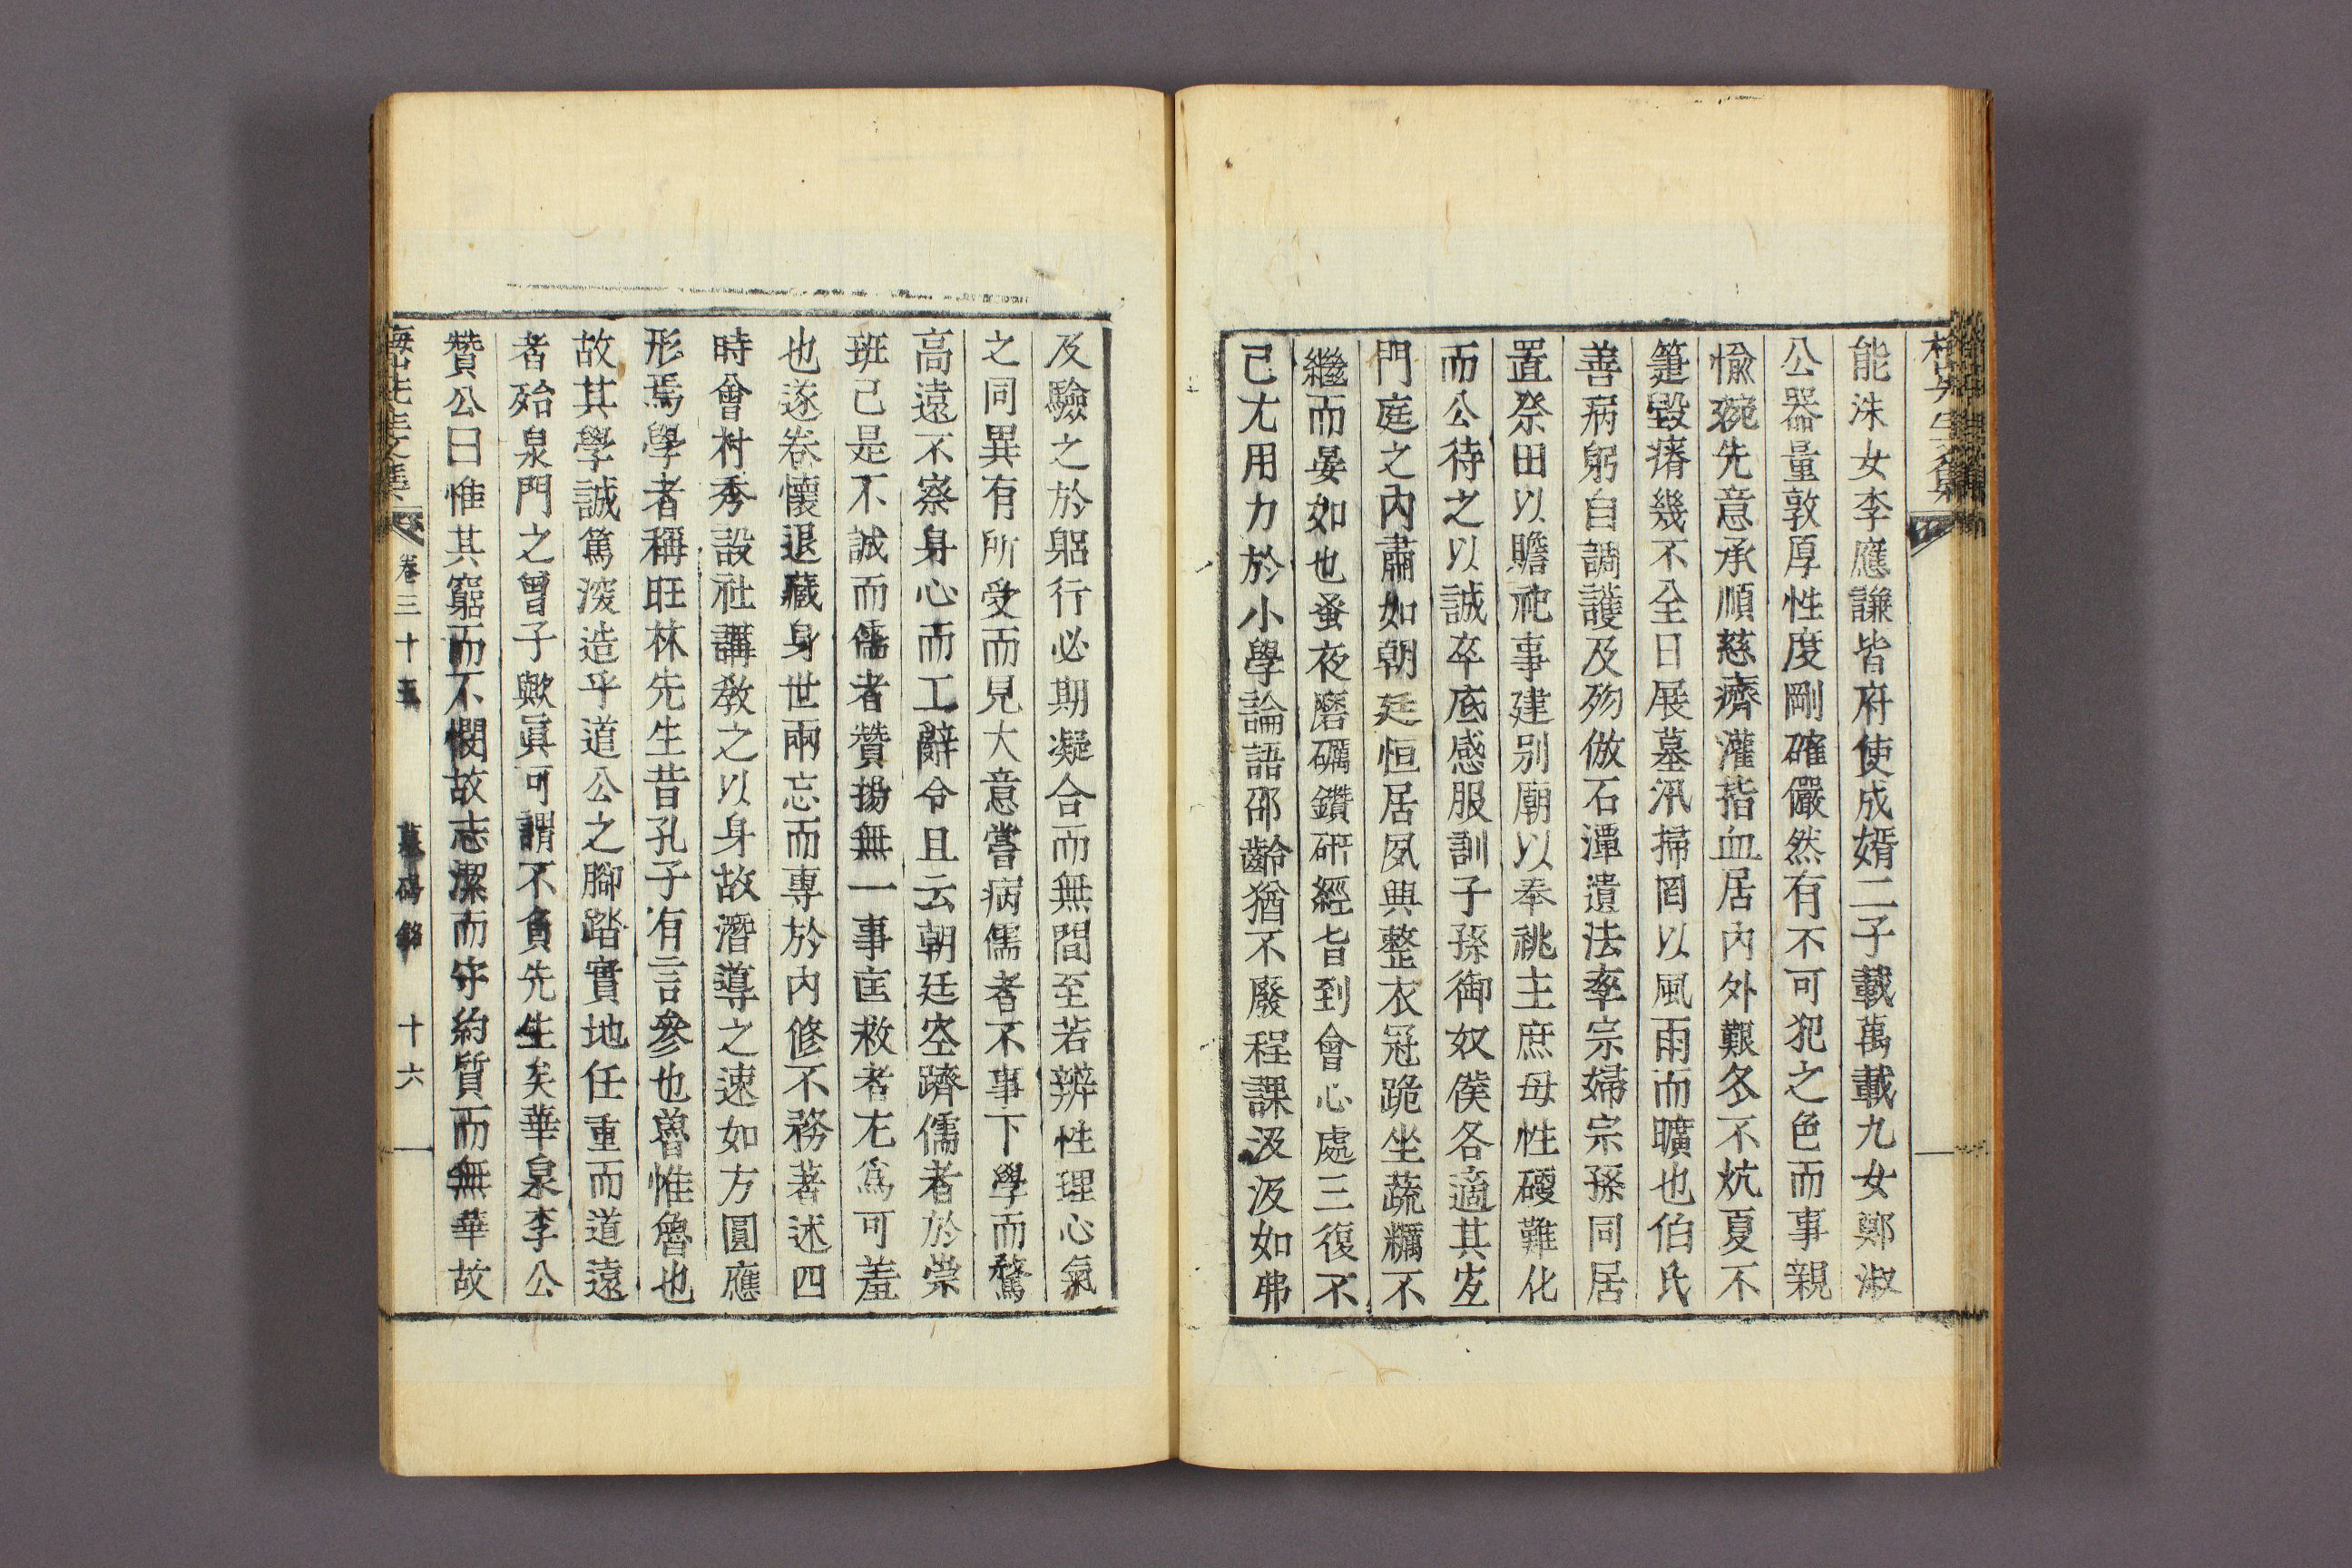 能洙女李應謙皆府使成婿二子載萬載九女鄭淑
公器量敦厚性度剛確儼然有不可犯之色而事親
愉婉先意承順慈濟灌指血居內外艱冬不炕夏不
箑毀瘠幾不全日展墓汛掃罔以風雨而曠也伯氏
善病躬自調護及歿倣石潭遺法率宗婦宗孫同居
置祭田以贍祀事建別廟以奉祧主庶母性礙難化
而公待之以誠卒底感服訓子孫御奴僕各適其宜
門庭之內肅如朝廷恒居夙興整衣冠跪坐蔬糲不
繼而晏如也蚤夜磨礪鑽硏經旨到會心處三復不
已尤用力於小學論語邵齡猶不廢程課汲汲如弗
及驗之於躳行必期凝合而無間至若辨性理心氣
之同異有所受而見大意嘗病儒者不事下學而騖
高遠不察身心而工辭令且云朝廷空躋儒者於崇
班已是不誠而儒者贊揚無一事匡救者尤爲可羞
也遂卷懷退藏身世兩忘而專於內修不務著述四
時會村秀設社講敎之以身故潛導之速如方圓應
形焉學者稱旺林先生昔孔子有言參也魯惟魯也
故其學誠篤深造乎道公之腳踏實地任重而道遠
者殆泉門之曾子歟眞可謂不負先生矣華泉李公
贊公曰惟其窮而不憫故志潔而守約質而無華故
梅山先生文集 卷三十五 墓碣銘 十六